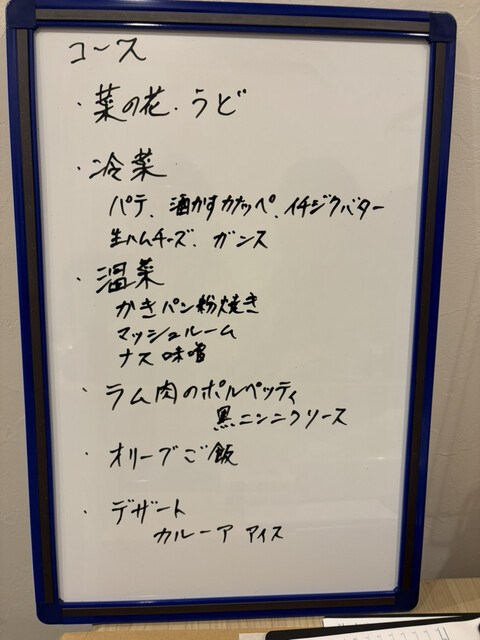 コース
・菜の花・うど
・冷菜
パテ、酒かすカナッペ、イチジクバター
生ハムチーズ、ガンス
・温菜
かきパン粉焼き
マッシュルーム
ナス味噌
・ラム肉のポルペッティ
黒ニンニクソース
・オリーブご飯
・デザート
カルーア アイス